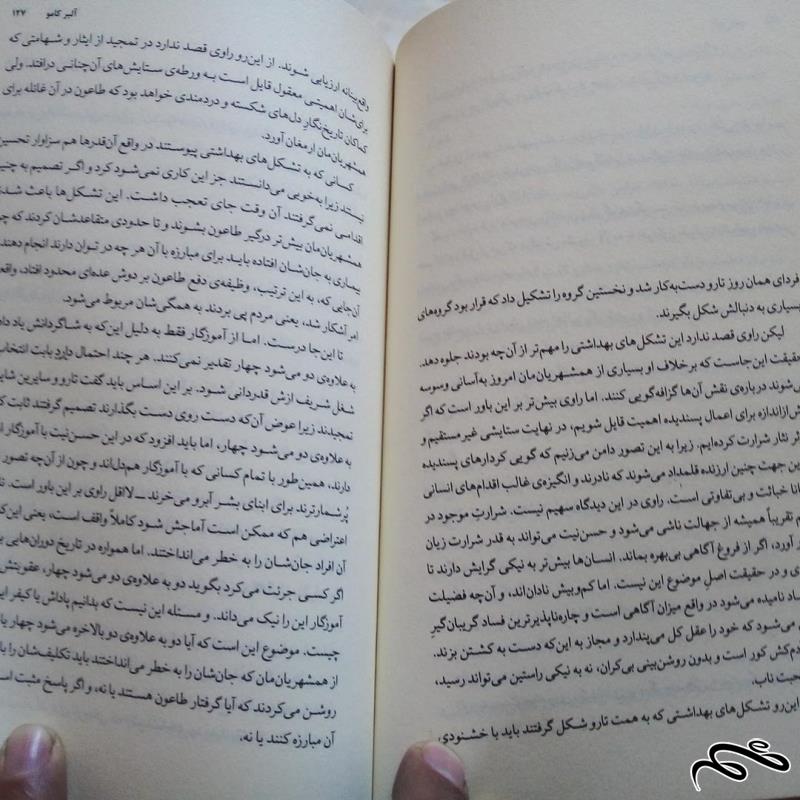 فردای همان روز تارو دست‌به‌کار شد و نخستین گروه را تشکیل داد که قرار بود گروه‌های
بسیاری به دنبالش شکل بگیرند.
لیکن راوی قصد ندارد این تشکل‌های بهداشتی را مهم‌تر از آن‌چه بودند جلوه دهد.
حقیقت این جاست که برخلاف او بسیاری از همشهریان‌مان امروز به‌آسانی وسوسه
می‌شوند درباره‌ی نقش آن‌ها گزافه‌گویی کنند. اما راوی بیش‌تر بر این باور است که اگر
بیش‌ازاندازه برای اعمال پسندیده اهمیت قایل شویم، در نهایت ستایشی غیرمستقیم و
نثار شرارت کرده‌ایم. زیرا به این تصور دامن می‌زنیم که گویی کردارهای پسندیده
این جهت چنین ارزنده قلمداد می‌شوند که نادرند و انگیزه‌ی غالب اقدام‌های انسانی
خباثت و بی‌تفاوتی است. راوی در این دیدگاه سهیم نیست. شرارتِ موجود در
تقریباً همیشه از جهالت ناشی می‌شود و حسن‌نیت می‌تواند به قدر شرارت زیان
آورد، اگر از فروغ آگاهی بی‌بهره بماند. انسان‌ها بیش‌تر به نیکی گرایش دارند تا
و در حقیقت اصلِ موضوع این نیست. اما کم‌وبیش نادان‌اند، و آن‌چه فضیلت
نامیده می‌شود در واقع میزان آگاهی است و چاره‌ناپذیرترین فساد گریبان‌گیرِ
می‌شود که خود را عقل کل می‌پندارد و مجاز به این‌که دست به کشتن بزند.
کور است و بدون روشن‌بینی بی‌کران، نه به نیکی راستین می‌تواند رسید،
ناب.
این‌رو تشکل‌های بهداشتی که به همت تارو شکل گرفتند باید با خشنودی،
آلبر کامو ۱۲۷
واقع‌بینانه ارزیابی شوند. از این‌رو راوی قصد ندارد در تمجید از ایثار و شهامتی که
برای‌شان اهمیتی معقول قایل است به ورطه‌ی ستایش‌های آن‌چنانی درافتد. ولی
کماکان تاریخ‌نگارِ دل‌های شکسته و دردمندی خواهد بود که طاعون در آن غائله برای
همشهریان‌مان ارمغان آورد.
کسانی که به تشکل‌های بهداشتی پیوستند در واقع آن‌قدرها هم سزاوار تحسین
نیستند زیرا به‌خوبی می‌دانستند جز این کاری نمی‌شود کرد و اگر تصمیم به چنین
اقدامی نمی‌گرفتند آن وقت جای تعجب داشت. این تشکل‌ها باعث شدند
همشهریان‌مان بیش‌تر درگیر طاعون بشوند و تا حدودی متقاعدشان کردند که
بیماری به جان‌شان افتاده باید برای مبارزه با آن هر چه در توان دارند انجام دهند.
آن‌جایی که، به این ترتیب، وظیفه‌ی دفع طاعون بر دوش عده‌ای محدود افتاد،
امر آشکار شد، یعنی مردم پی بردند به همگی‌شان مربوط می‌شود.
تا این‌جا درست. اما از آموزگار فقط به دلیل این‌که به شاگردانش یاد
به علاوه‌ی دو می‌شود چهار تقدیر نمی‌کنند. هر چند احتمال دارد بابت انتخاب
شغل شریف ازش قدردانی شود. بر این اساس باید گفت تارو و سایرین
تمجیدند زیرا عوض آن‌که دست روی دست بگذارند تصمیم گرفتند ثابت
به علاوه‌ی دو می‌شود چهار، اما باید افزود که در این حسن‌نیت با آموزگار
دارند، همین‌طور با تمام کسانی که با آموزگار هم‌دل‌اند و چون از آن‌چه تصور
پرشمارترند برای ابنای بشر آبرو می‌خرند ــ لااقل راوی بر این باور است.
اعتراضی هم که ممکن است آماجش شود کاملاً واقف است، یعنی
آن افراد جان‌شان را به خطر می‌انداختند. اما همواره در تاریخ دوران‌هایی
اگر کسی جرئت می‌کرد بگوید دو به علاوه‌ی دو می‌شود چهار، عقوبتش
آموزگار این را نیک می‌داند. و مسئله این نیست که بدانیم پاداش یا کیفر
چیست. موضوع این است که آیا دو به علاوه‌ی دو بالاخره می‌شود چهار یا
از همشهریان‌مان که جان‌شان را به خطر می‌انداختند باید تکلیف‌شان را
روشن می‌کردند که آیا گرفتار طاعون هستند یا نه، و اگر پاسخ مثبت
آن مبارزه کنند یا نه.